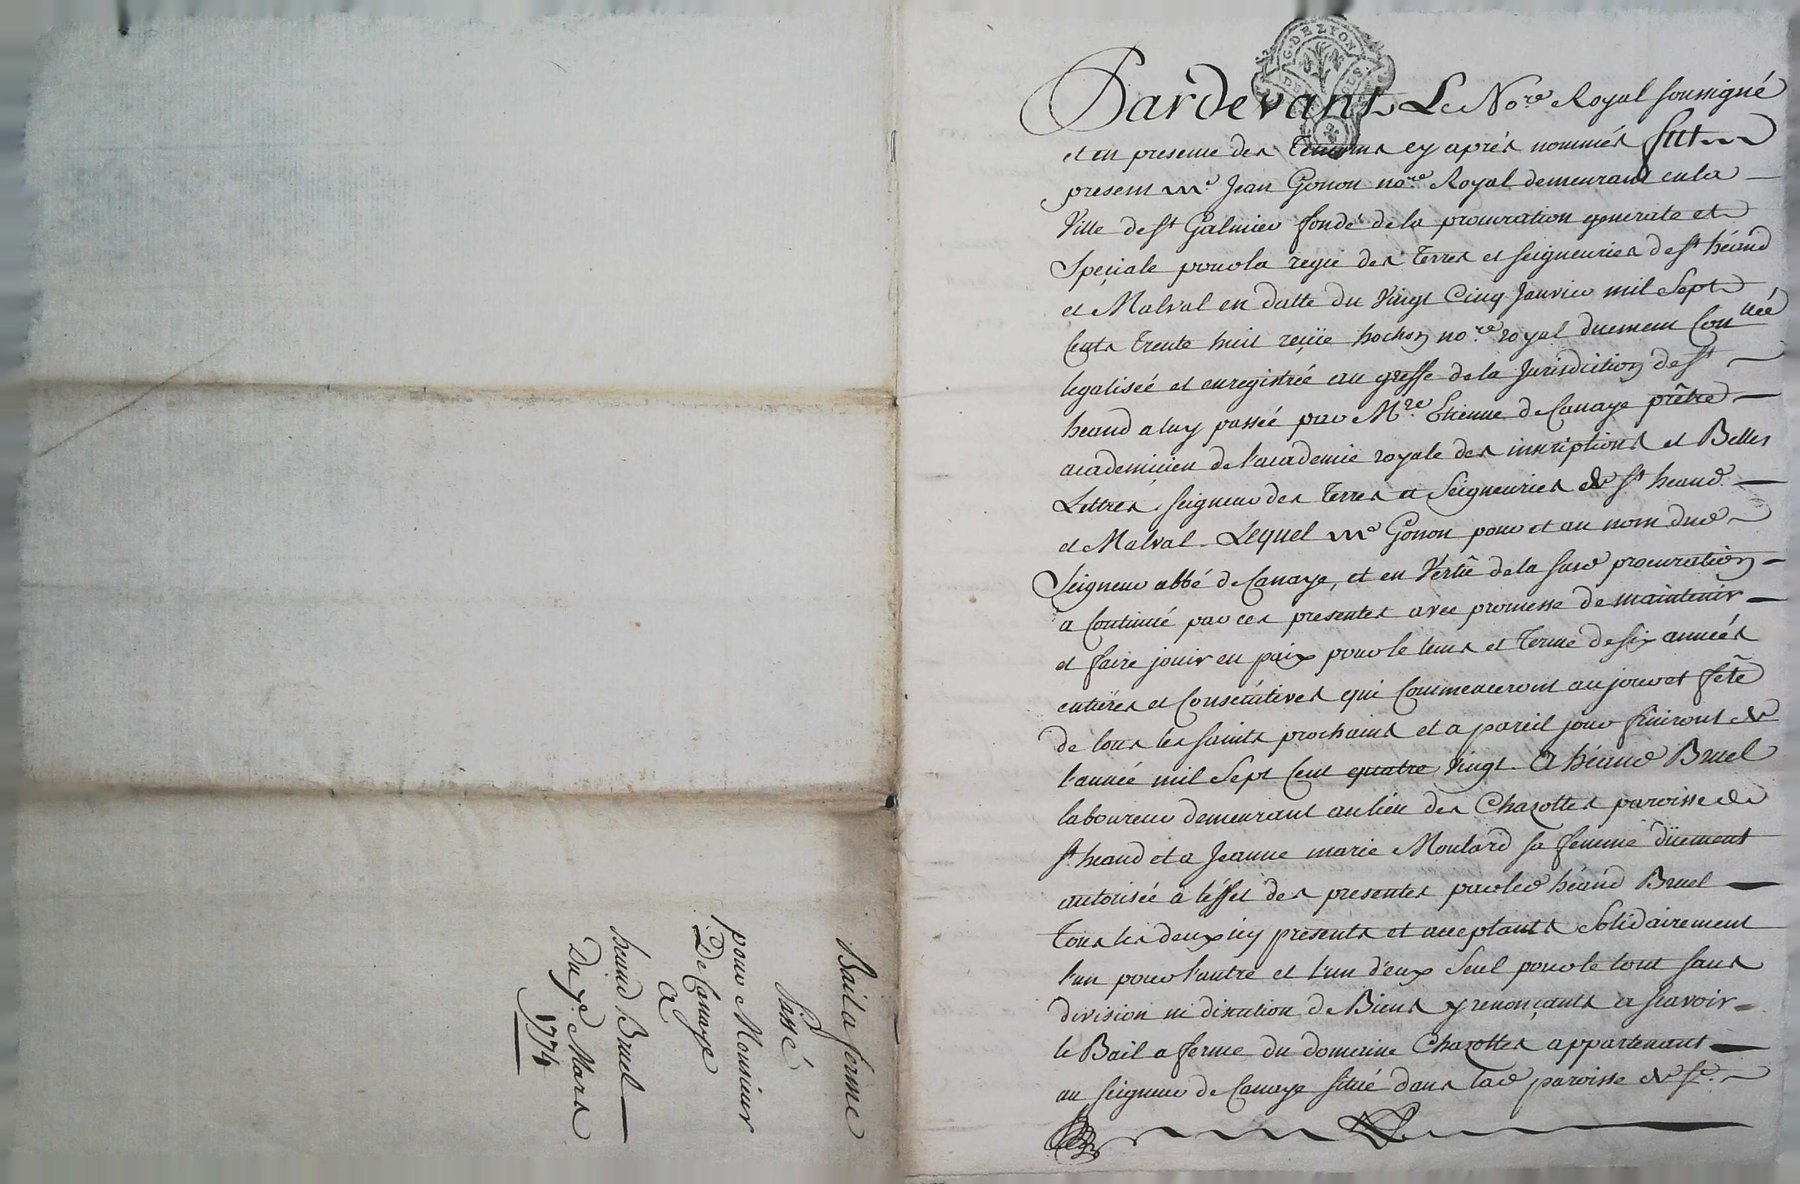 Bail a ferme
Passé
pour Monsieur
De Canaye
A
heand Bruel
Du 7e. Mars
1774
G. DE LYON
Pardevant Le No.re Royal soussigné
et en presence des temoins cy aprés nommés fut
present Me. Jean Gonon no.re Royal demeurant en la
Ville de st Galmier fondé de la procuration generale et
Speciale pour la regie des Terres et seigneuries de st héand
et Malval en datte du Vingt Cinq Janvier mil Sept
Cents trente huit reçüe hochon no.re royal duement Con.llée
legalisée et enregistrée au greffe de la Jurisdiction de st
heand a luy passée par M.re Etienne de Canaye prêtre
academicien de l'academie royale des inscriptions et Belles
Lettres, seigneur des Terres et Seigneuries de st heand
et Malval. Lequel Me Gonon pour et au nom dud
Seigneur abbé de Canaye, et en Vértû de la susd procuration
a Continué par ces presentes avec promesse de maintenir
et faire jouir en paix pour le tems et terme de six années
entières et Consécutives qui Commenceront au jour et fête
de tous les saints prochains et a pareil jour finiront de
l'année mil Sept Cent quatre Vingt. A héand Bruel
laboureur demeurant au lieu des Chazottes paroisse de
st heand et a Jeanne marie Moulard sa femme düement
autorisée à l'éffet des presentes par led héand Bruel
tous les deux icy présents et acceptants Solidairement
l'un pour l'autre et l'un d'eux Seul pour le tout sans
division ni discution de Biens y renonçants a scavoir
le Bail a ferme du domerine Chazottes appartenant
au seigneur de Canaye situé dans lad paroisse de st.